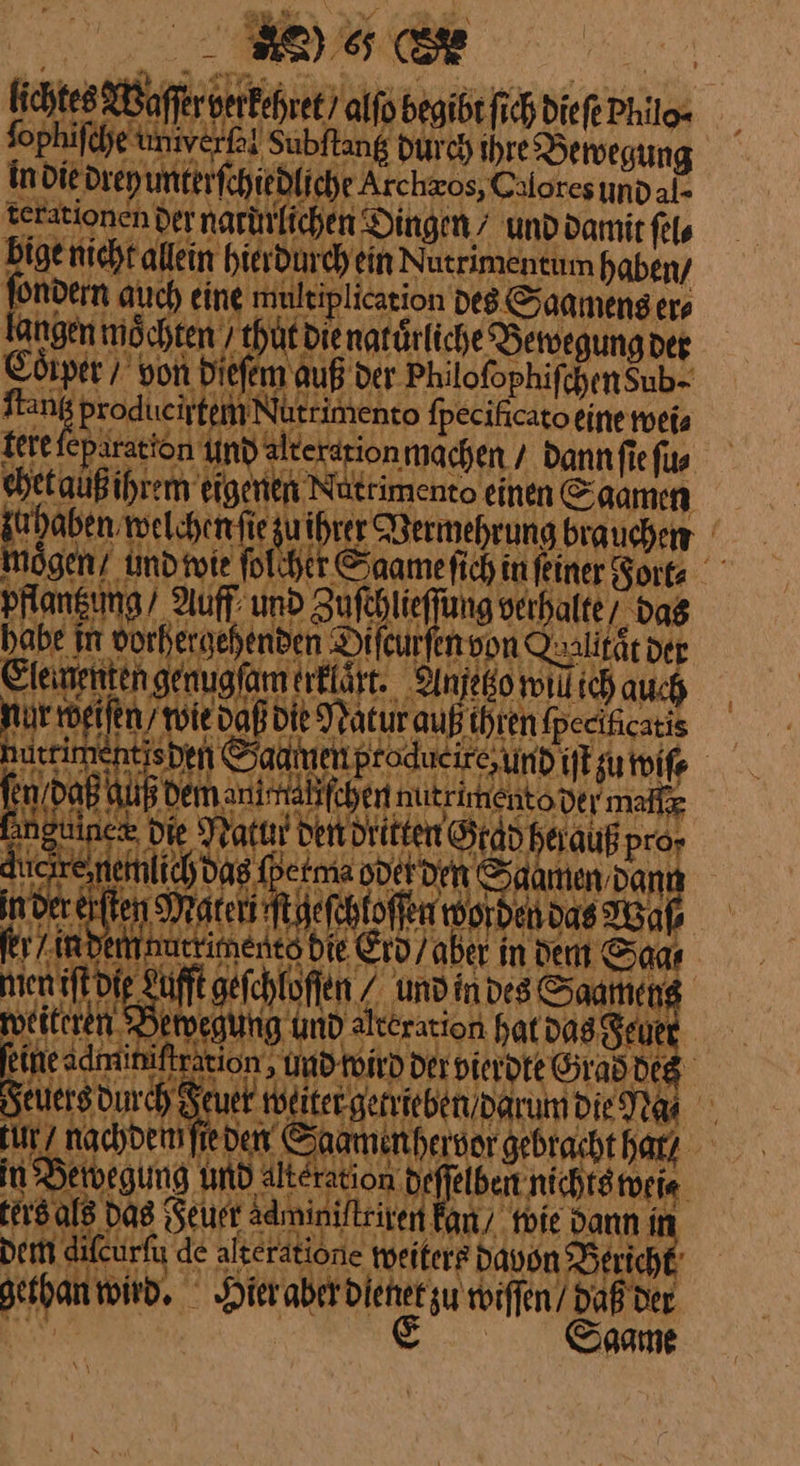 65
lichtes Waſſer verkehret / alſo begibt ſich dieſe Philo-
ſophiſche univerſal Subſtantz durch ihre Bewegung
in die drey unterſchiedliche Archæos, Calores und al-
terationen der natürlichen Dingen / und damit ſel-
bige nicht allein hierdurch ein Nutrimentum haben /
ſondern auch eine multiplication des Saamens er-
langen möchten / thut die natürliche Bewegung der
Cörper / von dieſem auß der Philoſophiſchen Sub-
ſtantz producirtem Nutrimento ſpecificato eine wei-
tere ſeparation und alteration machen / dann ſie ſu-
chet auß ihrem eigenen Nutrimento einen Saamen
zu haben welchen ſie zu ihrer Vermehrung brauchen
mögen / und wie ſolcher Saame ſich in ſeiner Fort-
pflantzung / Auff- und Zuſchlieſſung verhalte / das
habe in vorhergehenden Diſcurſen von Qualität der
Elementen genugſam erklärt. Anjetzo will ich auch
nur weiſen / wie daß die Natur auß ihren ſpecificatis
nutrimentis den Saamen producire, und iſt zu wiſ-
ſen / daß auß dem animaliſchen nutrimento der maſſæ
ſanguineæ die Natur den dritten Grad herauß pro-
ducire, nemlich das ſperma oder den Saamen / dann
in der erſten Materi iſt geſchloſſen worden das Waſ-
ſer / in dem nutrimento die Erd / aber in dem Saa-
men iſt die Lufft geſchloſſen / und in des Saamens
weiteren Bewegung und alteration hat das Feuer
ſeine adminiſtration, und wird der vierdte Grad des
Feuers durch Feuer weiter getrieben / darum die Na-
tur / nachdem ſie den Saamen hervor gebracht hat /
in Bewegung und alteration deſſelben nichts wei-
ters als das Feuer adminiſtriren kan / wie dann in
dem diſcurſu de alteratione weiters davon Bericht
gethan wird. Hier aber dienet zu wiſſen / daß der
E Saame